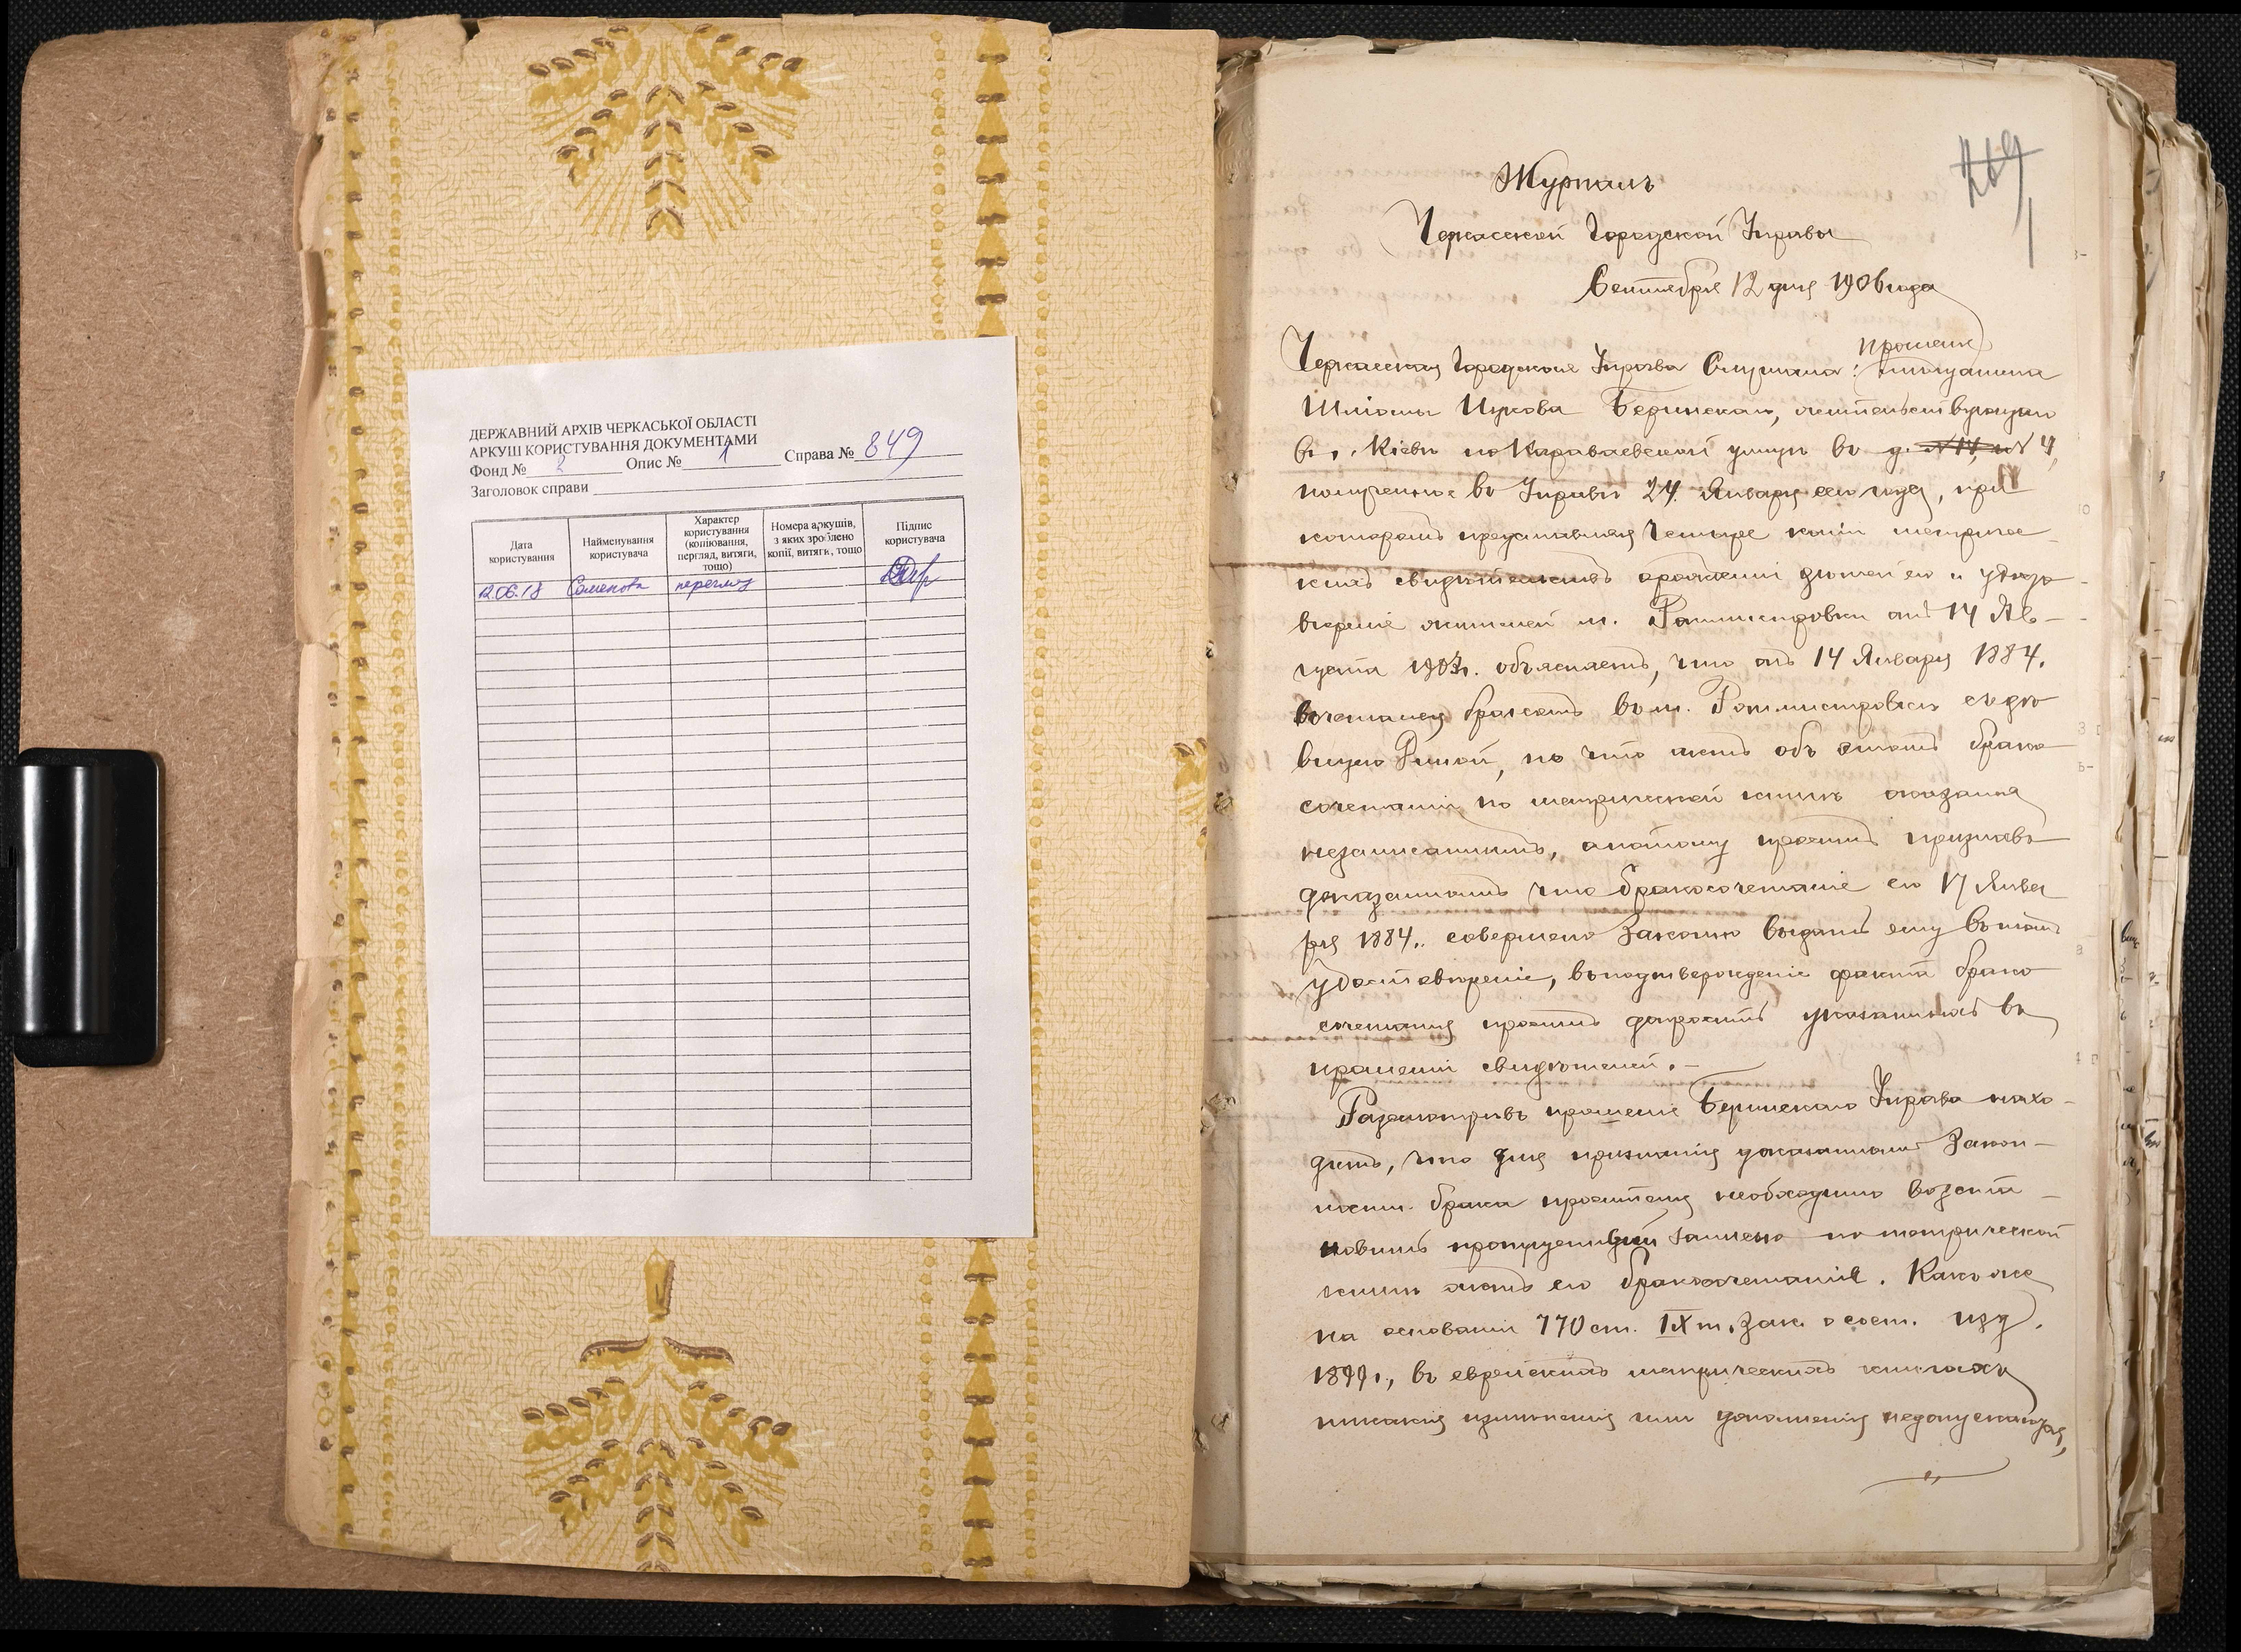 ДЕРЖАВНИЙ АРХІВ ЧЕРКАСЬКОЇ ОБЛАСТІ
АРКУШ КОРИСТУВАННЯ ДОКУМЕНТАМИ
Фонд № 2 Опис № 1 Справа № 849
Заголовок справи
Дата користування
Найменування користувача
Характер користування (копіювання, перегляд, витяги, тощо)
Номера аркушів, з яких зроблено копії, витяги, тощо
Підпис користувача
12.06.18 Семенова перегляд
269
1
Журналъ
Черкасской Городской Управы
Сентября 12 дня 1906 года
прошеніе
Черкасская Городская Управа Слушала:
Шліомы Ицкова Бердинскаго, жительствующаго
въ г. Кіевѣ по Караваевской улицѣ въ д. № 4,
полученное въ Управѣ 24 Января сего года, при
которомъ представляя четыре копіи метричес
кихъ свидѣтельствъ о рожденіи дѣтей его и удосто
вѣреніе жителей м. Ротмистровки отъ 14 Ав-
густа 1903г. объясняетъ, что онъ 14 Января 1884г.
вочетался бракомъ въ м. Ротмистровкѣ съ дѣ
вицею, но что актъ объ этомъ брако
сочетаніи по метрической книгѣ оказался
незаписаннымъ, а потому проситъ признавъ
доказаннымъ что бракосочетаніе его 17 Янва
ря 1884г. совершено законно выдать ему въ томъ
удостовѣреніе, въ подтвержденіе факта брако
сочетанія проситъ допросить указанныхъ въ
прошеніи свидѣтелей.-
Разсмотрѣвъ прошеніе Бердинскаго Управа нахо-
дитъ, что для признанія доказанными закон-
ности брака просителя необходимо возста-
новить пропущенный записью по метрической
книгѣ актъ его бракосочетанія. Какъ же
на основаніи 770 ст. IX т. зак. о сост. изд.
1899г., въ еврейскихъ метрическихъ книгахъ
никакія измѣненія или дополненія недопускаются,